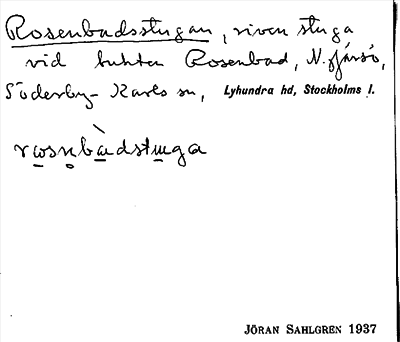 Rosenbadsstugan, riven stuga
vid bukten Rosenbad, N. Järsö,
Söderby-Karls sn, Lyhundra hd, Stockholms l.
rωsn̥bàdstɯga
JÖRAN SAHLGREN 1937